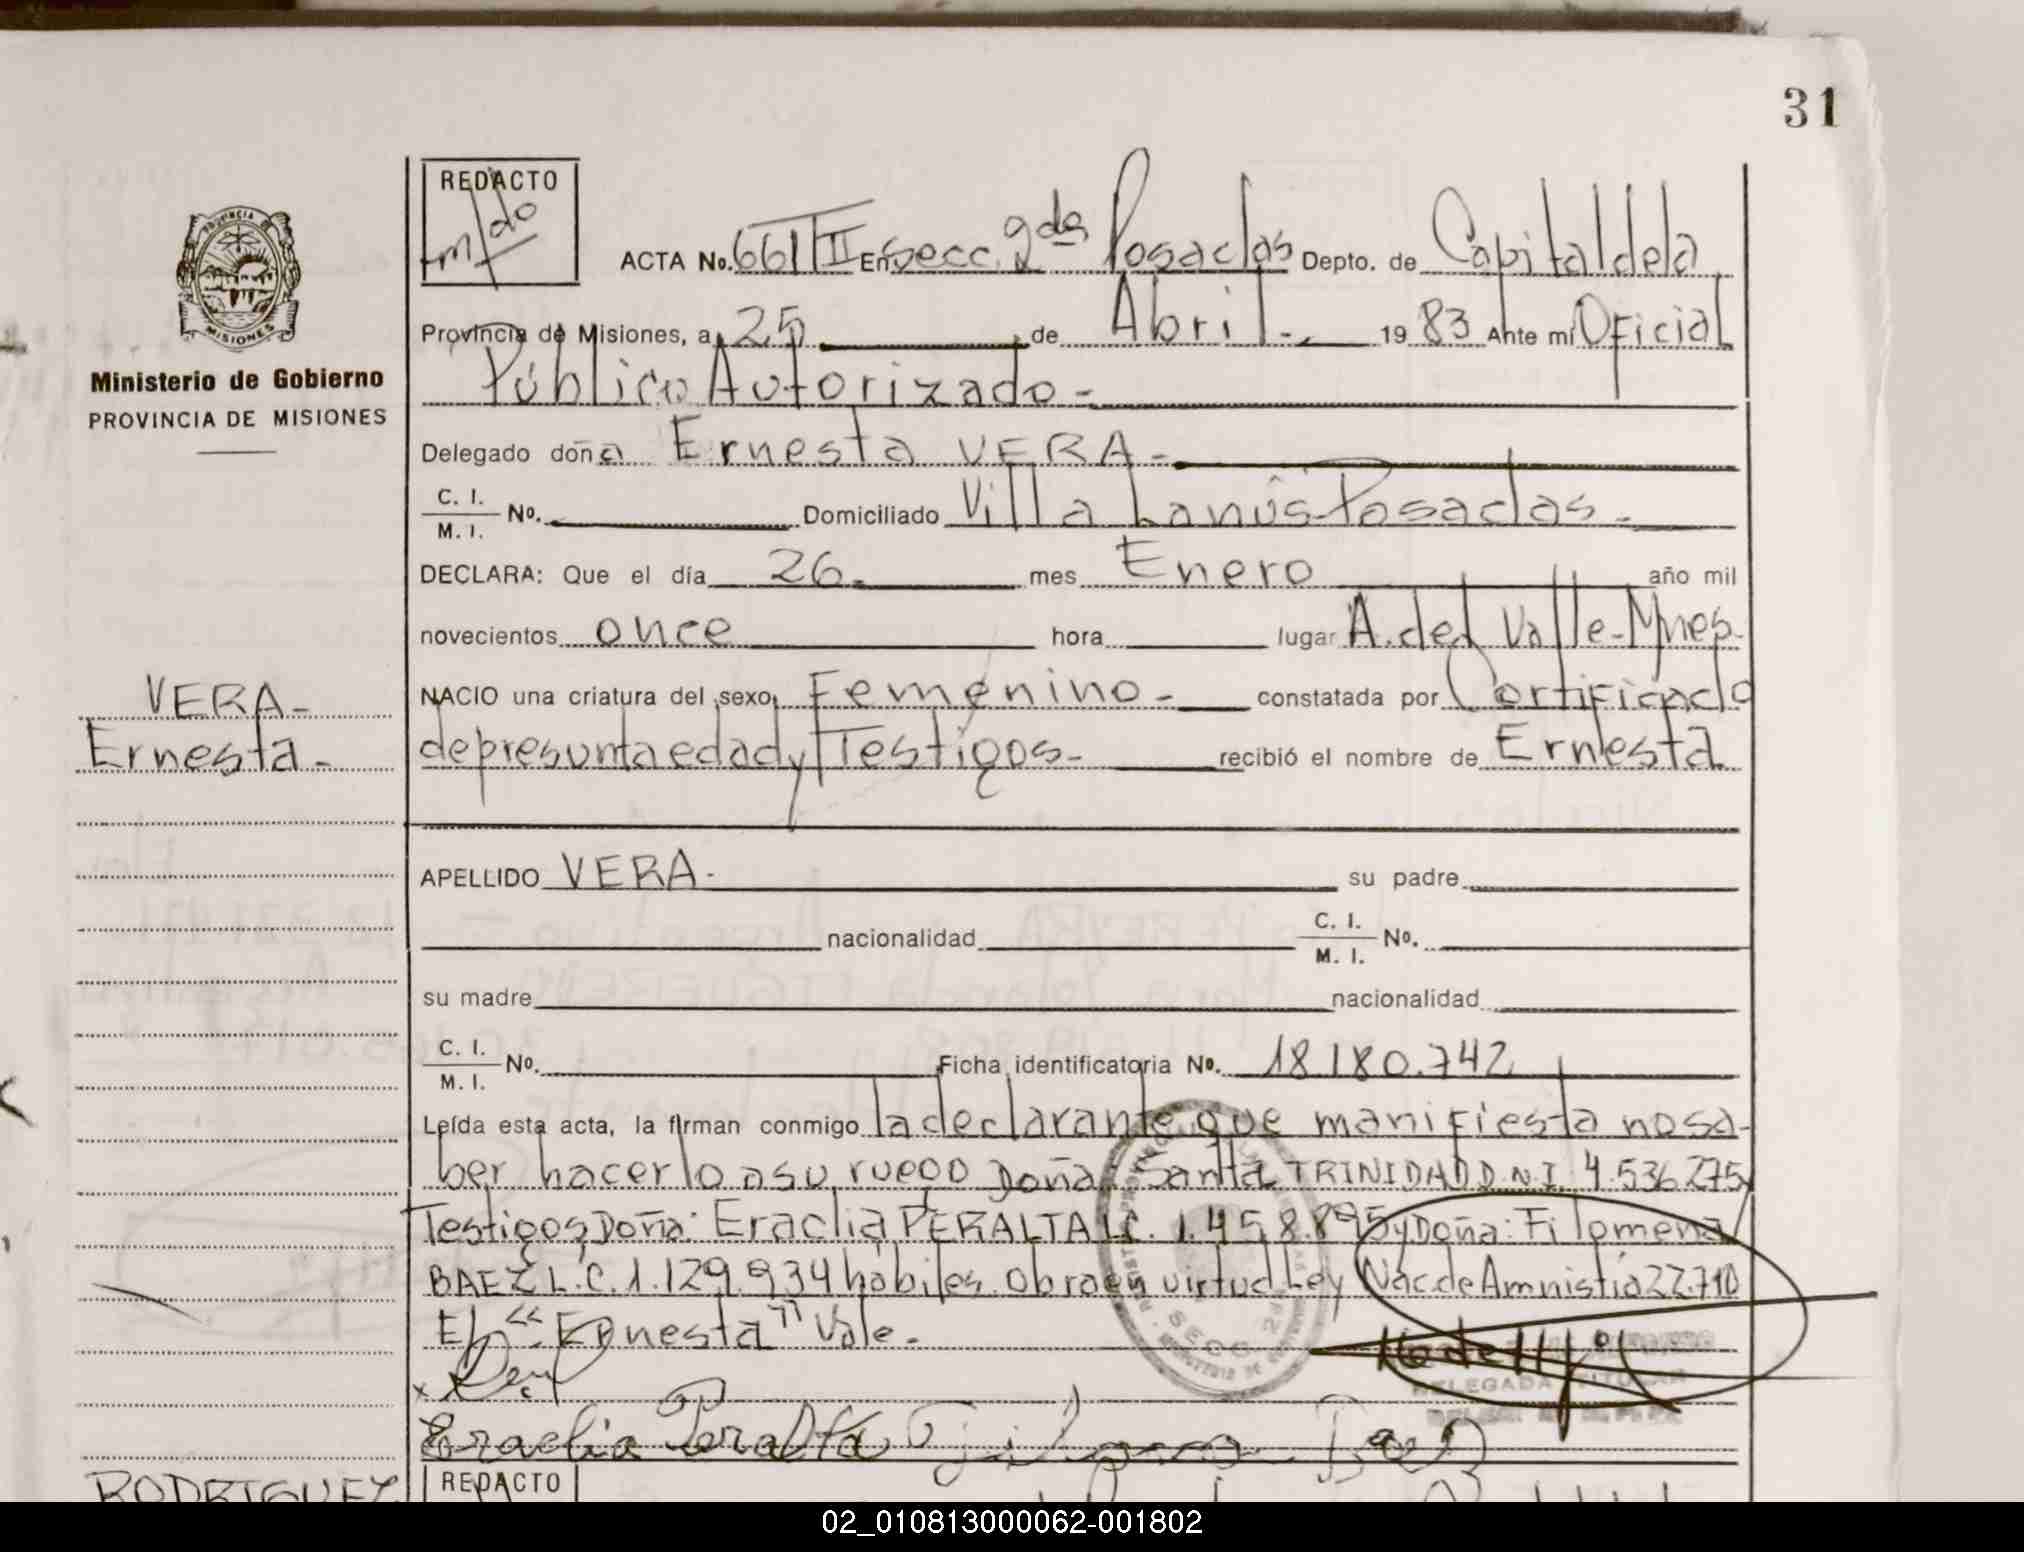 31
REDACTO
m/do
PROVINCIA
MISIONES
ACTA No. 661/II En Secc. 2da Posadas Depto. de Capital de la
Provincia de Misiones, a 25 de Abril.- 1983 Ante mí Oficial
Público Autorizado -
Ministerio de Gobierno
PROVINCIA DE MISIONES
Delegado doña Ernesta VERA -
C. I.
M. I. No. Domiciliado Villa Lanús Posadas.-
DECLARA: Que el día 26.- mes Enero año mil
novecientos once hora lugar A. del Valle-Mnes-
VERA-
Ernesta-
NACIO una criatura del sexo Femenino - constatada por Certificado
de presunta edad y Testigos- recibió el nombre de Ernesta
APELLIDO VERA- su padre
nacionalidad C. I.
M. I. No.
su madre nacionalidad
C. I.
M. I. No. Ficha identificatoria No. 18.180.742
Leída esta acta, la firman conmigo la declarante que manifiesta no sa-
ber hacerlo a su ruego Doña Santa TRINIDAD D.N.I. 4.536.275
Testigos Doña: Eraclia PERALTA L.C. 1.458.895 y Doña: Filomena
BAEZ L.C. 1.129.934 hábiles. Obra en virtud Ley Nac. de Amnistía 22.710
E/ "Ernesta" Vale.-
SECC. 2
DELEGADA TITULAR
Eraclia Peralta Filomena Baez
RODRIGUEZ
REDACTO
02_010813000062-001802